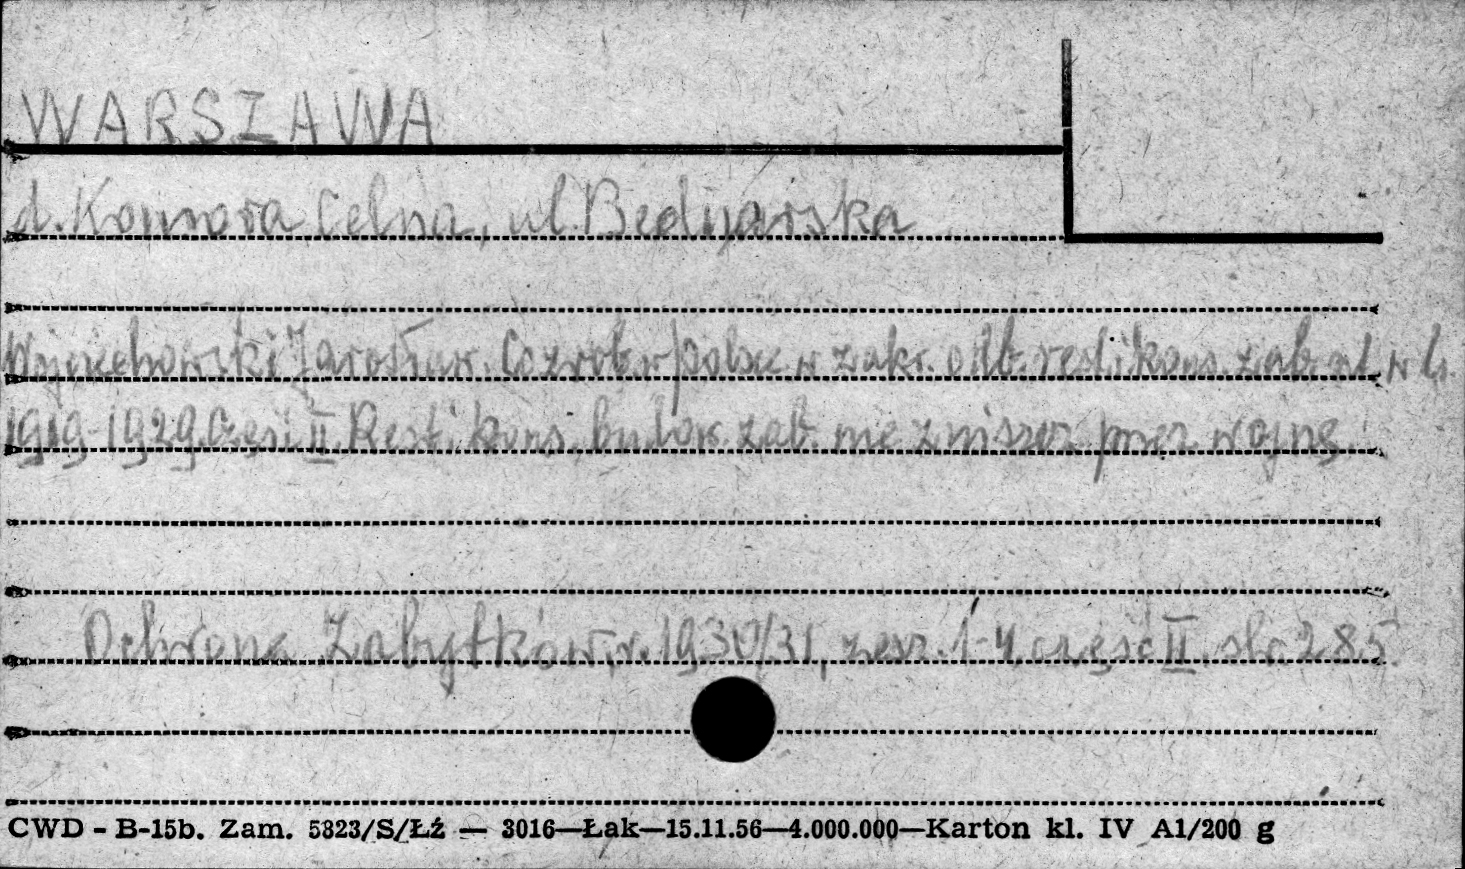 WARSZAWA
d. Komora Celna, ul. Bednarska
Wojciechowski Jarosław. Co zrob. w Polsce w zakr. odb. rest. i kons. zab. arch. w l.
1919-1929. Część II. Rest. i kons. budow. zab. nie zniszcz. przez wojnę
Ochrona Zabytków, r. 1930/31, zesz. 1-4 część II. str. 285
CWD - B-15b. Zam. 5823/S/Łź — 3016—Łak—15.11.56—4.000.000—Karton kl. IV A1/200 g